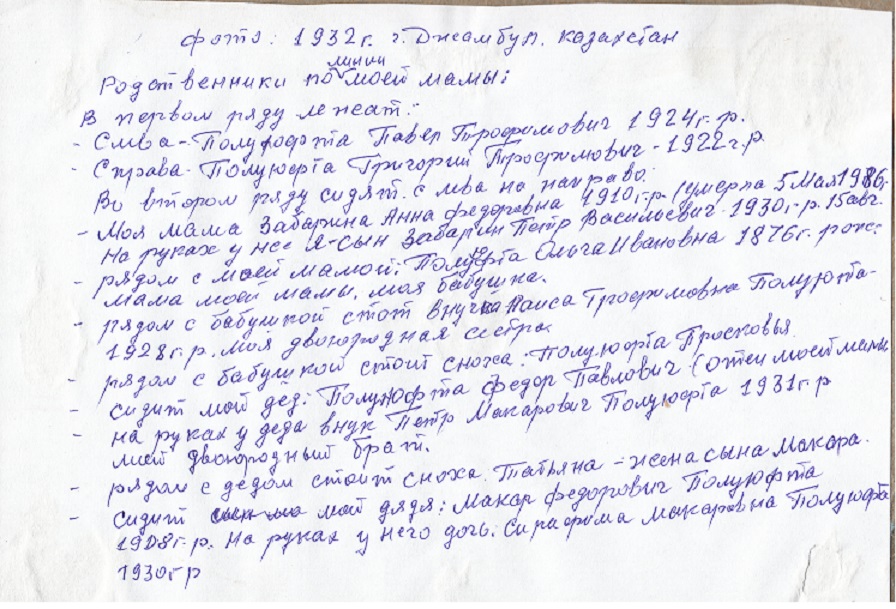 фото: 1932г. г. Джамбул. Казахстан
Родственники по линии моей мамы:
В первом ряду лежат:
- Слева - Полуюфта Павел Трофимович 1924г.р.
- Справа - Полуюфта Григорий Трофимович - 1922г.р.
Во втором ряду сидят с лева на направо:
- Моя мама Забарина Анна Федоровна 1910г.р. (умерла 5 Мая 1986г.
На руках у нее я - сын Забарин Петр Васильевич - 1930г.р. 15 авг.
- рядом с моей мамой: Полуюфта Ольга Ивановна 1876г. рож.
мама моей мамы, моя бабушка.
- рядом с бабушкой стоит внучка Раиса Трофимовна Полуюфта -
1928г.р. Моя двоюродная сестра
- рядом с бабушкой стоит сноха: Полуюфта Просковья
- сидит мой дед: Полуюфта Федор Павлович (отец моей мамы
- на руках у деда внук Петр Макарович Полуюфта 1931г.р
мой двоюродный брат.
- рядом с дедом стоит сноха. Татьяна - жена сына Макара.
- Сидит мой дядя: Макар Федорович Полуюфта
1908г.р. На руках у него дочь: Сирафима Макаровна Полуюфта
1930г р